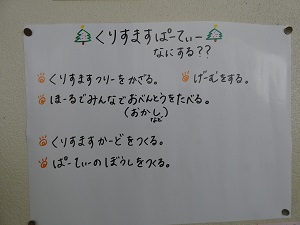 くりすますぱーてぃー
なにする??
くりすますつりーをかざる。 げーむをする。
ほーるでみんなでおべんとうをたべる。
(おかしなど)
くりすますかーどをつくる。
ぱーてぃーのぼうしをつくる。